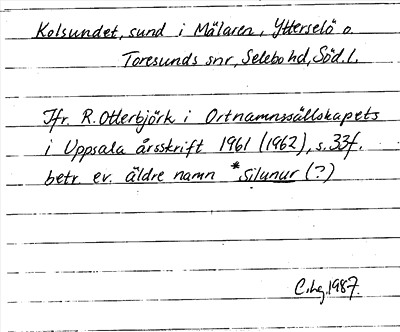 Kolsundet, sund i Mälaren, Ytterselö o.
Toresunds snr, Selebo hd, Söd. l.
Jfr. R. Otterbjörk i Ortnamnssällskapets
i Uppsala årsskrift 1961 (1962), s. 33f.
betr. ev. äldre namn *Silunur (?)
C.hg 1987.